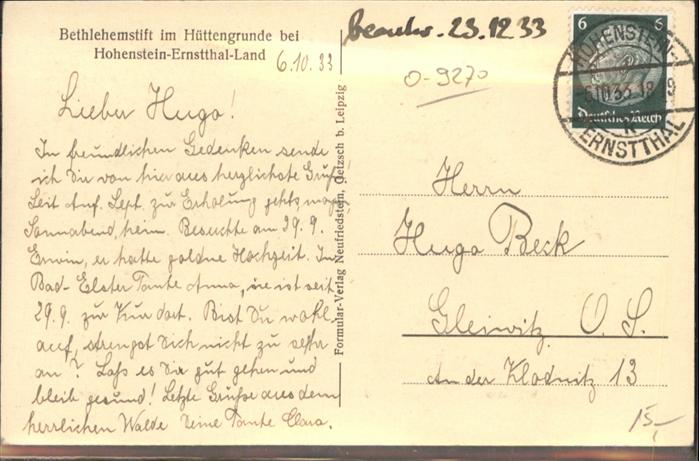 Bethlehemstift im Hüttengrunde bei
Hohenstein-Ernstthal-Land
6.10.33
beantw. 23.12.33
O-9270
6 6
Deutsches Reich
HOHENSTEIN-
6.10.33.18-9
ERNSTTHAL
Lieber Hugo!
In freundlichen Gedenken sende
ich Dir von hier aus herzlichste Grüße!
Seit Anf. Sept. zur Erholung gehts morg.
Sonnabend heim. Besuchte am 29.9.
Erwin, er hatte goldne Hochzeit. In
Bad-Elster Tante Anna, sie ist seit
29.9. zur Kur dort. Bist Du wohl
auf, strengst Dich nicht zu sehr
an? Laß es Dir gut gehen und
bleib gesund! Letzte Grüße aus dem
herrlichen Walde Deine Tante Clara.
Formular-Verlag Neufriedstein, Oetzsch b. Leipzig
Herrn
Hugo Beck
Gleiwitz O. S.
An der Klodnitz 13
15,-